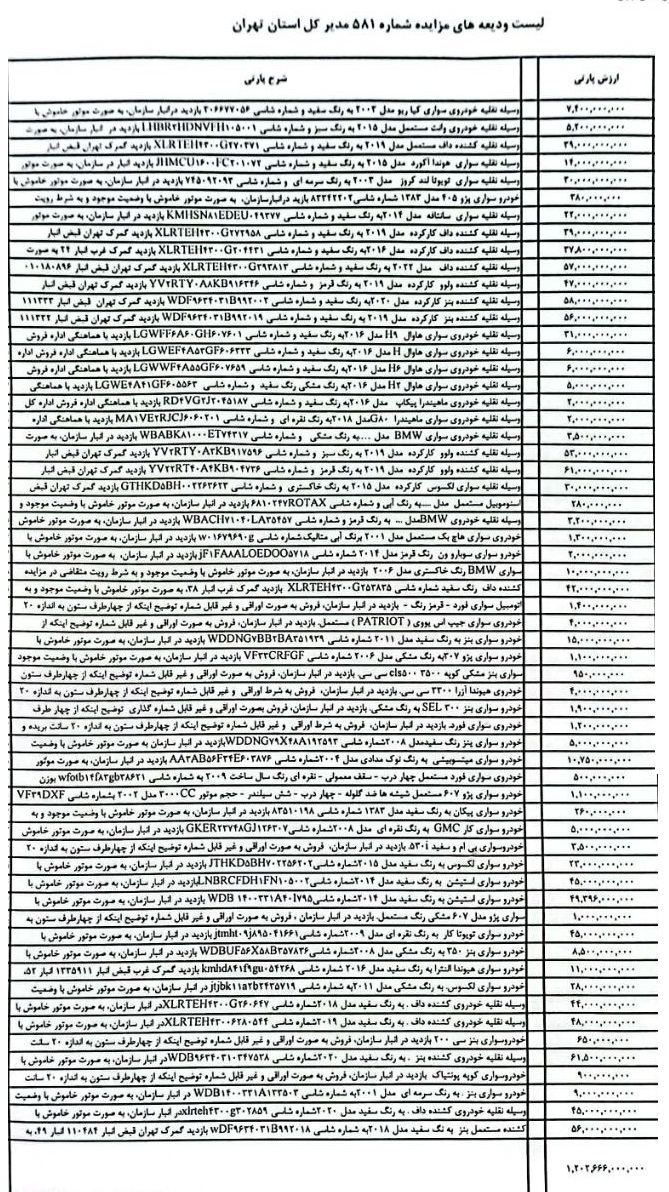 لیست ودیعه های مزایده شماره ۵۸۱ مدیر کل استان تهران
ارزش پارتی شرح پارتی
۷,۴۰۰,۰۰۰,۰۰۰ وسیله نقلیه خودروی سواری کیا ریو مدل ۲۰۰۲ به رنگ سفید و شماره شاسی ۳۰۶۶۷۷۰۵۶ بازدید درانبار سازمان، به صورت موتور خاموش با
۵,۲۰۰,۰۰۰,۰۰۰ وسیله نقلیه خودروی وانت مستعمل مدل ۲۰۱۵ به رنگ سبز و شماره شاسی LHBR۲HDNVFH۱۰۵۰۰۱ بازدید در انبار سازمان، به صورت
۳۹,۰۰۰,۰۰۰,۰۰۰ وسیله نقلیه کشنده داف مستعمل مدل ۲۰۱۹ به رنگ سفید و شماره شاسی XLRTEH۴۳۰۰G۲۷۰۲۷۱ بازدید گمرک تهران قبض انبار
۱۴,۰۰۰,۰۰۰,۰۰۰ وسیله نقلیه سواری هوندا آکورد مدل ۲۰۱۵ به رنگ سفید و شماره شاسی JHMCU۱۶۰۰FC۲۰۱۰۷۲ بازدید انبار در سازمان، به صورت موتور
۳۰,۰۰۰,۰۰۰,۰۰۰ وسیله نقلیه سواری تویوتا لند کروز مدل ۲۰۰۳ به رنگ سرمه ای و شماره شاسی ۷۴۵۰۹۲۰۹۳ بازدید در انبار سازمان، به صورت موتور خاموش با
۳۸۰,۰۰۰,۰۰۰ خودرو سواری پژو ۴۰۵ مدل ۱۳۸۳ شماره شاسی۸۳۳۴۲۲۰۲ بازید درانبارسازمان، به صورت موتور خاموش با وضعیت موجود و به شرط رویت
۲۲,۰۰۰,۰۰۰,۰۰۰ وسیله نقلیه سواری سانتافه مدل ۲۰۱۴به رنگ سفید و شماره شاسی KMHSN۸۱EDEU۰۴۹۲۷۷ بازدید در انبار سازمان، به صورت موتور
۳۹,۰۰۰,۰۰۰,۰۰۰ وسیله نقلیه کشنده داف کارکرده مدل ۲۰۱۹ به رنگ سفید و شماره شاسی XLRTEH۴۳۰۰G۲۷۲۹۵۸ بازدید گمرک تهران قبض انبار
۳۷,۸۰۰,۰۰۰,۰۰۰ وسیله نقلیه کشنده داف کارکرده مدل ۲۰۱۶به رنگ سفید و شماره شاسی XLRTEH۴۳۰۰G۲۰۴۴۳۱ بازدید گمرک غرب انبار ۲۴ به صورت
۵۷,۰۰۰,۰۰۰,۰۰۰ وسیله نقلیه کشنده داف مدل ۲۰۲۲ به رنگ سفید و شماره شاسی XLRTEH۴۳۰۰G۳۹۳۸۱۳ بازدید گمرک تهران قبض انبار ۰۱۰۱۸۰۸۹۶
۴۷,۰۰۰,۰۰۰,۰۰۰ وسیله نقلیه کشنده ولوو کارکرده مدل ۲۰۱۹ به رنگ قرمز و شماره شاسی YV۲RTY۰A۸KB۹۱۶۳۴۶ بازدید گمرک تهران قبض انبار
۵۸,۰۰۰,۰۰۰,۰۰۰ وسیله نقلیه کشنده بنز کارکرده مدل ۲۰۲۰به رنگ سفید و شماره شاسی WDF۹۶۳۴۰۳۱B۹۹۲۰۰۲ بازدید گمرک تهران قبض انبار ۱۱۱۳۳۳
۵۶,۰۰۰,۰۰۰,۰۰۰ وسیله نقلیه کشنده بنز کارکرده مدل ۲۰۱۹ به رنگ سفید و شماره شاسی WDF۹۶۳۴۰۳۱B۹۹۲۰۱۹ بازدید گمرک تهران قبض انبار ۱۱۱۳۳۲
۳۱,۰۰۰,۰۰۰,۰۰۰ وسیله نقلیه خودروی سواری هاوال H۹ مدل ۲۰۱۶به رنگ سفید و شماره شاسی LGWFF۶A۶۰GH۶۰۷۶۰۱ بازدید با هماهنگی اداره فروش
۶,۰۰۰,۰۰۰,۰۰۰ وسیله نقلیه خودروی سواری هاوال H مدل ۲۰۱۶به رنگ سفید و شماره شاسی LGWEF۴A۵۳GF۶۰۶۳۳۳ بازدید با هماهنگی اداره فروش اداره
۶,۰۰۰,۰۰۰,۰۰۰ وسیله نقلیه خودروی سواری هاوال H۶ مدل ۲۰۱۶به رنگ سفید و شماره شاسی LGWWF۴A۵۵GF۶۰۷۶۵۹ بازدید با هماهنگی اداره فروش
۵,۰۰۰,۰۰۰,۰۰۰ وسیله نقلیه خودروی سواری هاوال H۲ مدل ۲۰۱۶به رنگ مشکی رنگ سفید و شماره شاسی LGWE۴A۴۱GF۶۰۵۵۶۳ بازدید با هماهنگی
۲,۰۰۰,۰۰۰,۰۰۰ وسیله نقلیه خودروی ماهیندرا پیکاپ مدل ۲۰۱۶به رنگ سفید و شماره شاسی RD۴VG۲J۲۰۴۵۱۸۷ بازدید با هماهنگی اداره فروش اداره کل
۲,۰۰۰,۰۰۰,۰۰۰ وسیله نقلیه خودروی سواری ماهیندرا G۸۰مدل ۲۰۱۸به رنگ نقره ای و شماره شاسی MA۱VE۲RJCJ۶۰۶۰۲۰۱ بازدید با هماهنگی اداره
۳,۵۰۰,۰۰۰,۰۰۰ وسیله نقلیه خودروی سواری BMW مدل ....به رنگ مشکی و شماره شاسی WBABK۸۱۰۰۰ET۷۴۳۱۷ بازدید در انبار سازمان، به صورت
۵۳,۰۰۰,۰۰۰,۰۰۰ وسیله نقلیه کشنده ولوو کارکرده مدل ۲۰۱۹ به رنگ سبز و شماره شاسی YV۲RTY۰A۲KB۹۱۷۵۹۶ بازدید گمرک تهران قبض انبار
۶۱,۰۰۰,۰۰۰,۰۰۰ وسیله نقلیه کشنده ولوو کارکرده مدل ۲۰۱۹ به رنگ قرمز و شماره شاسی YV۲RT۴۰A۴KB۹۰۴۷۳۶ بازدید گمرک تهران قبض انبار
۳۰,۰۰۰,۰۰۰,۰۰۰ وسیله نقلیه سواری لکسوس کارکرده مدل ۲۰۱۵ به رنگ خاکستری و شماره شاسی GTHKD۵BH۰۰۲۲۶۳۶۲۳ بازدید گمرک تهران قبض
۲۸۰,۰۰۰,۰۰۰ اسنوموبیل مستعمل مدل ....به رنگ آبی و شماره شاسی ۶۸۱۰۲۴۷ROTAX بازدید در انبار سازمان، به صورت موتور خاموش با وضعیت موجود و
۳,۲۰۰,۰۰۰,۰۰۰ وسیله نقلیه خودروی BMWمدل ... به رنگ قرمز و شماره شاسی WBACH۷۱۰۴۰LA۳۵۴۵۷ بازدید در انبار سازمان، به صورت موتور خاموش
۱,۳۰۰,۰۰۰,۰۰۰ خودروی سواری هاچ بک مستعمل مدل ۲۰۰۱ برنگ آبی متالیک شماره شاسی w۰۱۶۷۹۶۹۰g بازدید در انبار سازمان، به صورت موتور خاموش
۲,۰۰۰,۰۰۰,۰۰۰ خودروی سواری سوبارو ون رنگ قرمز مدل ۲۰۱۴ شماره شاسی jF۱FAAALOEDOO۵۷۱۸ بازدید در انبار سازمان، به صورت موتور خاموش با
۱۰,۰۰۰,۰۰۰,۰۰۰ سواری BMW رنگ خاکستری مدل ۲۰۰۶ بازدید در انبار سازمان، به صورت موتور خاموش با وضعیت موجود و به شرط رویت متقاضی در مزایده
۴۲,۰۰۰,۰۰۰,۰۰۰ کشنده داف رنگ سفید شماره شاسی XLRTEH۴۳۰۰G۲۵۳۸۳۵ بازدید گمرک غرب انبار ۳۸، به صورت موتور خاموش با وضعیت موجود و به
۱,۴۰۰,۰۰۰,۰۰۰ اتومبیل سواری فورد - قرمز رنگ - بازدید در انبار سازمان، فروش به صورت اوراقی و غیر قابل شماره توضیح اینکه از چهارطرف ستون به اندازه ۲۰
۴,۰۰۰,۰۰۰,۰۰۰ خودروی سواری جیپ اس یووی ( PATRIOT ) مستعمل، بازدید در انبار سازمان، فروش به صورت اوراقی و غیر قابل شماره توضیح اینکه از
۱۵,۰۰۰,۰۰۰,۰۰۰ خودرو سواری بنز به رنگ سفید مدل ۲۰۱۱ شماره شاسی WDDNG۷BB۲BA۳۵۱۹۳۹ بازدید در انبار سازمان، به صورت موتور خاموش با
۱,۱۰۰,۰۰۰,۰۰۰ خودرو سواری پژو ۳۰۷به رنگ مشکی مدل ۲۰۰۶ شماره شاسی VF۳۳CRFGF بازدید در انبار سازمان، به صورت موتور خاموش با وضعیت موجود
۹۵۰,۰۰۰,۰۰۰ سواری بنز مشکی کوپه cls۵۰۰ ۳۵۰۰ سی سی. بازدید در انبار سازمان، فروش به صورت اوراقی و غیر قابل شماره توضیح اینکه از چهارطرف ستون
۴,۰۰۰,۰۰۰,۰۰۰ خودروی هیوندا آزرا ۳۳۰۰ سی سی. بازدید در انبار سازمان، فروش به شرط اوراقی و غیر قابل شماره توضیح اینکه از چهارطرف ستون به اندازه ۲۰
۱,۹۰۰,۰۰۰,۰۰۰ خودروی سواری بنز SEL ۳۰۰ به رنگ مشکی. بازدید در انبار سازمان، فروش بصورت اوراقی و غیر قابل شماره گذاری توضیح اینکه از چهار طرف
۱,۲۰۰,۰۰۰,۰۰۰ خودروی سواری فورد. بازدید در انبار سازمان، فروش به شرط اوراقی و غیر قابل شماره توضیح اینکه از چهارطرف ستون به اندازه ۲۰ سانت بریده و
۵,۰۰۰,۰۰۰,۰۰۰ خودرو سواری بنز رنگ سفیدمدل ۲۰۰۸شماره شاسی WDDNG۷۹X۴۸A۱۹۲۵۹۲بازدید در انبار سازمان به صورت موتور خاموش با وضعیت
۱۰,۷۵۰,۰۰۰,۰۰۰ خودرو سواری میتسوبیشی به رنگ نوک مدادی مدل ۲۰۰۴شماره شاسی AA۳AB۵۶F۲۴E۶۰۳۸۷۶ بازدید در انبار سازمان، به صورت موتور
۵۰۰,۰۰۰,۰۰۰ خودروی سواری فورد مستعمل چهار درب - سقف معمولی - نقره ای رنگ سال ساخت ۲۰۰۹ به شماره شاسی wfotb۱۴f۸۲gb۳۸۶۲۱ بوزن
۱,۱۰۰,۰۰۰,۰۰۰ خودروی سواری پژو ۶۰۷ مستعمل شیشه ها ضد گلوله - چهار درب - شش سیلندر - حجم موتور ۳۰۰۰CC مدل ۲۰۰۲ بشماره شاسی VF۳۹DXF
۲۶۰,۰۰۰,۰۰۰ خودرو سواری پیکان به رنگ سفید مدل ۱۳۸۳ شماره شاسی ۸۳۵۱۰۱۹۸ بازدید در انبار سازمان، به صورت موتور خاموش با وضعیت موجود و به
۵,۰۰۰,۰۰۰,۰۰۰ خودرو سواری کار GMC به رنگ نقره ای مدل ۲۰۰۸شماره شاسیGKER۲۲۷۴۸GJ۱۲۶۳۰۷ بازدید در انبار سازمان، به صورت موتور خاموش با
۳,۵۰۰,۰۰۰,۰۰۰ خودروسواری بی ام و سفید ۵۳۰i. بازدید در انبار سازمان، فروش به صورت اوراقی و غیر قابل شماره توضیح اینکه از چهارطرف ستون به اندازه ۲۰
۲۳,۰۰۰,۰۰۰,۰۰۰ خودرو سواری لکسوس به رنگ سفید مدل ۲۰۱۵شماره شاسیJTHKD۵BH۷۰۲۲۵۶۲۰۲ بازدید در انبار سازمان، به صورت موتور خاموش با
۴۵,۰۰۰,۰۰۰,۰۰۰ خودرو سواری استیشن به رنگ سفید مدل ۲۰۱۴شماره شاسیLNBRCFDH۱FN۱۰۵۰۰۲بازدید در انبار سازمان، به صورت موتور خاموش با
۴۹,۳۹۶,۰۰۰,۰۰۰ خودرو سواری استیشن به رنگ سفید مدل ۲۰۱۴شماره شاسیWDB ۱۴۰۰۳۳۱A۴۰۱۷۹۵ بازدید در انبار سازمان، به صورت موتور خاموش با
۱,۰۰۰,۰۰۰,۰۰۰ سواری پژو مدل ۶۰۷ مشکی رنگ مستعمل. بازدید در انبار سازمان ، فروش به صورت اوراقی و غیر قابل شماره توضیح اینکه از چهارطرف ستون به
۴۵,۰۰۰,۰۰۰,۰۰۰ خودرو سواری تویوتا کار به رنگ نقره ای مدل ۲۰۰۹شماره شاسیjtmht۰۹j۸۹۵۰۴۱۶۶۱ بازدید در انبار سازمان، به صورت موتور خاموش با
۸,۵۰۰,۰۰۰,۰۰۰ خودرو سواری بنز ۳۵۰ به رنگ مشکی مدل ۲۰۰۸شماره شاسیWDBUF۵۶X۵۸B۳۵۷۸۳۶ بازدید در انبار سازمان، به صورت موتور خاموش با
۱۱,۰۰۰,۰۰۰,۰۰۰ خودرو سواری هیوندا النترا به رنگ سفید مدل ۲۰۱۶ شماره شاسی kmhd۸۴۱f۹gu۰۵۴۲۶۸ بازدید گمرک غرب قبض انبار ۱۳۳۵۹۱۱ انبار ۵۲،
۲۸,۰۰۰,۰۰۰,۰۰۰ خودرو سواری لکسوس. به رنگ مشکی مدل ۲۰۱۱به شماره شاسی jtjbk۱۱a۲b۲۴۲۵۷۱۹ بازدید در انبار سازمان، به صورت موتور خاموش با وضعیت
۴۴,۰۰۰,۰۰۰,۰۰۰ وسیله نقلیه خودروی کشنده داف . به رنگ سفید مدل ۲۰۱۸شماره شاسیXLRTEH۴۳۰۰G۲۶۰۶۴۷در انبار سازمان، به صورت موتور خاموش با
۴۸,۰۰۰,۰۰۰,۰۰۰ وسیله نقلیه خودروی کشنده داف . به رنگ سفید مدل ۲۰۱۹شماره شاسیXLRTEH۴۳۰۰۶۲۸۰۵۴۴در انبار سازمان، به صورت موتور خاموش با
۶۵۰,۰۰۰,۰۰۰ خودروسواری بنز سی ۲۰۰ بازدید در انبار سازمان، فروش به صورت اوراقی و غیر قابل شماره توضیح اینکه از چهارطرف ستون به اندازه ۲۰ سانت
۶۱,۵۰۰,۰۰۰,۰۰۰ وسیله نقلیه خودروی کشنده بنز . به رنگ سفید مدل ۲۰۲۰شماره شاسی WDB۹۶۳۴۰۳۱۰۳۴۷۵۳۸در انبار سازمان، به صورت موتور خاموش با
۹۰۰,۰۰۰,۰۰۰ خودروسواری کوپه پونتیاک بازدید در انبار سازمان، فروش به صورت اوراقی و غیر قابل شماره توضیح اینکه از چهارطرف ستون به اندازه ۲۰ سانت
۹,۰۰۰,۰۰۰,۰۰۰ خودرو سواری بنز . به رنگ سرمه ای مدل ۲۰۰۱به شماره شاسی WDB۱۴۰۰۳۳۱A۱۳۳۵۰۲ در انبار سازمان، به صورت موتور خاموش با وضعیت
۴۵,۰۰۰,۰۰۰,۰۰۰ وسیله نقلیه خودروی کشنده داف. به رنگ سفید مدل ۲۰۲۰شماره شاسی xlrteh۴۳۰۰g۳۰۲۸۵۹در انبار سازمان، به صورت موتور خاموش با
۵۶,۰۰۰,۰۰۰,۰۰۰ کشنده مستعمل بنز به نگ سفید مدل ۲۰۱۸به شماره شاسی wDF۹۶۳۴۰۳۱B۹۹۲۰۱۸ بازدید گمرک تهران قبض انبار ۱۱۰۴۸۴ انبار ۴۹، به
۱,۲۰۲,۶۶۶,۰۰۰,۰۰۰